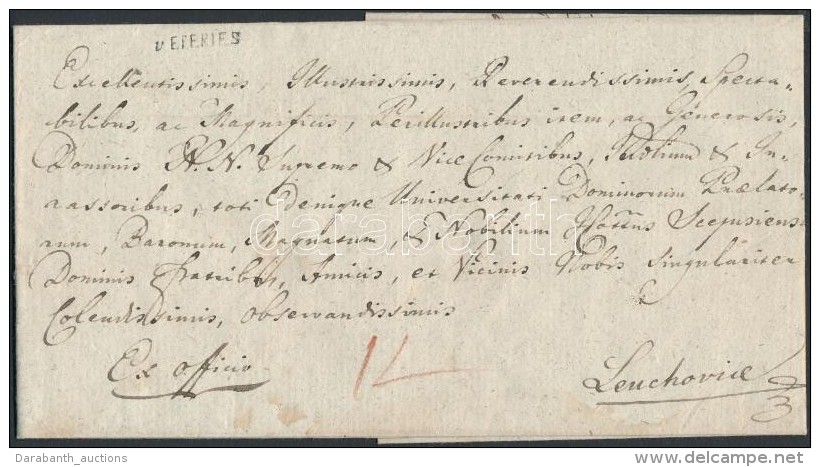 v EPERIES
Excellentissimis, Illustrissimis, Reverendissimis, Specta-
bilibus, ac Magnificis, Perillustribus item, ac Generosis,
Dominis N. N. Supremo & Vice Comitibus, Judlium & Ju-
rassoribus, toti denique Universitati Dominorum Prælato-
rum, Baronum, Magnatum, & Nobilium Scepusiens
Dominis Fratribus, Amicis, et Vicinis Nobis Singulariter
Colendissimis, observandissimis
Ex officio
Leuchoviæ
darabanth
Darabanth_auctions
delcampe.net